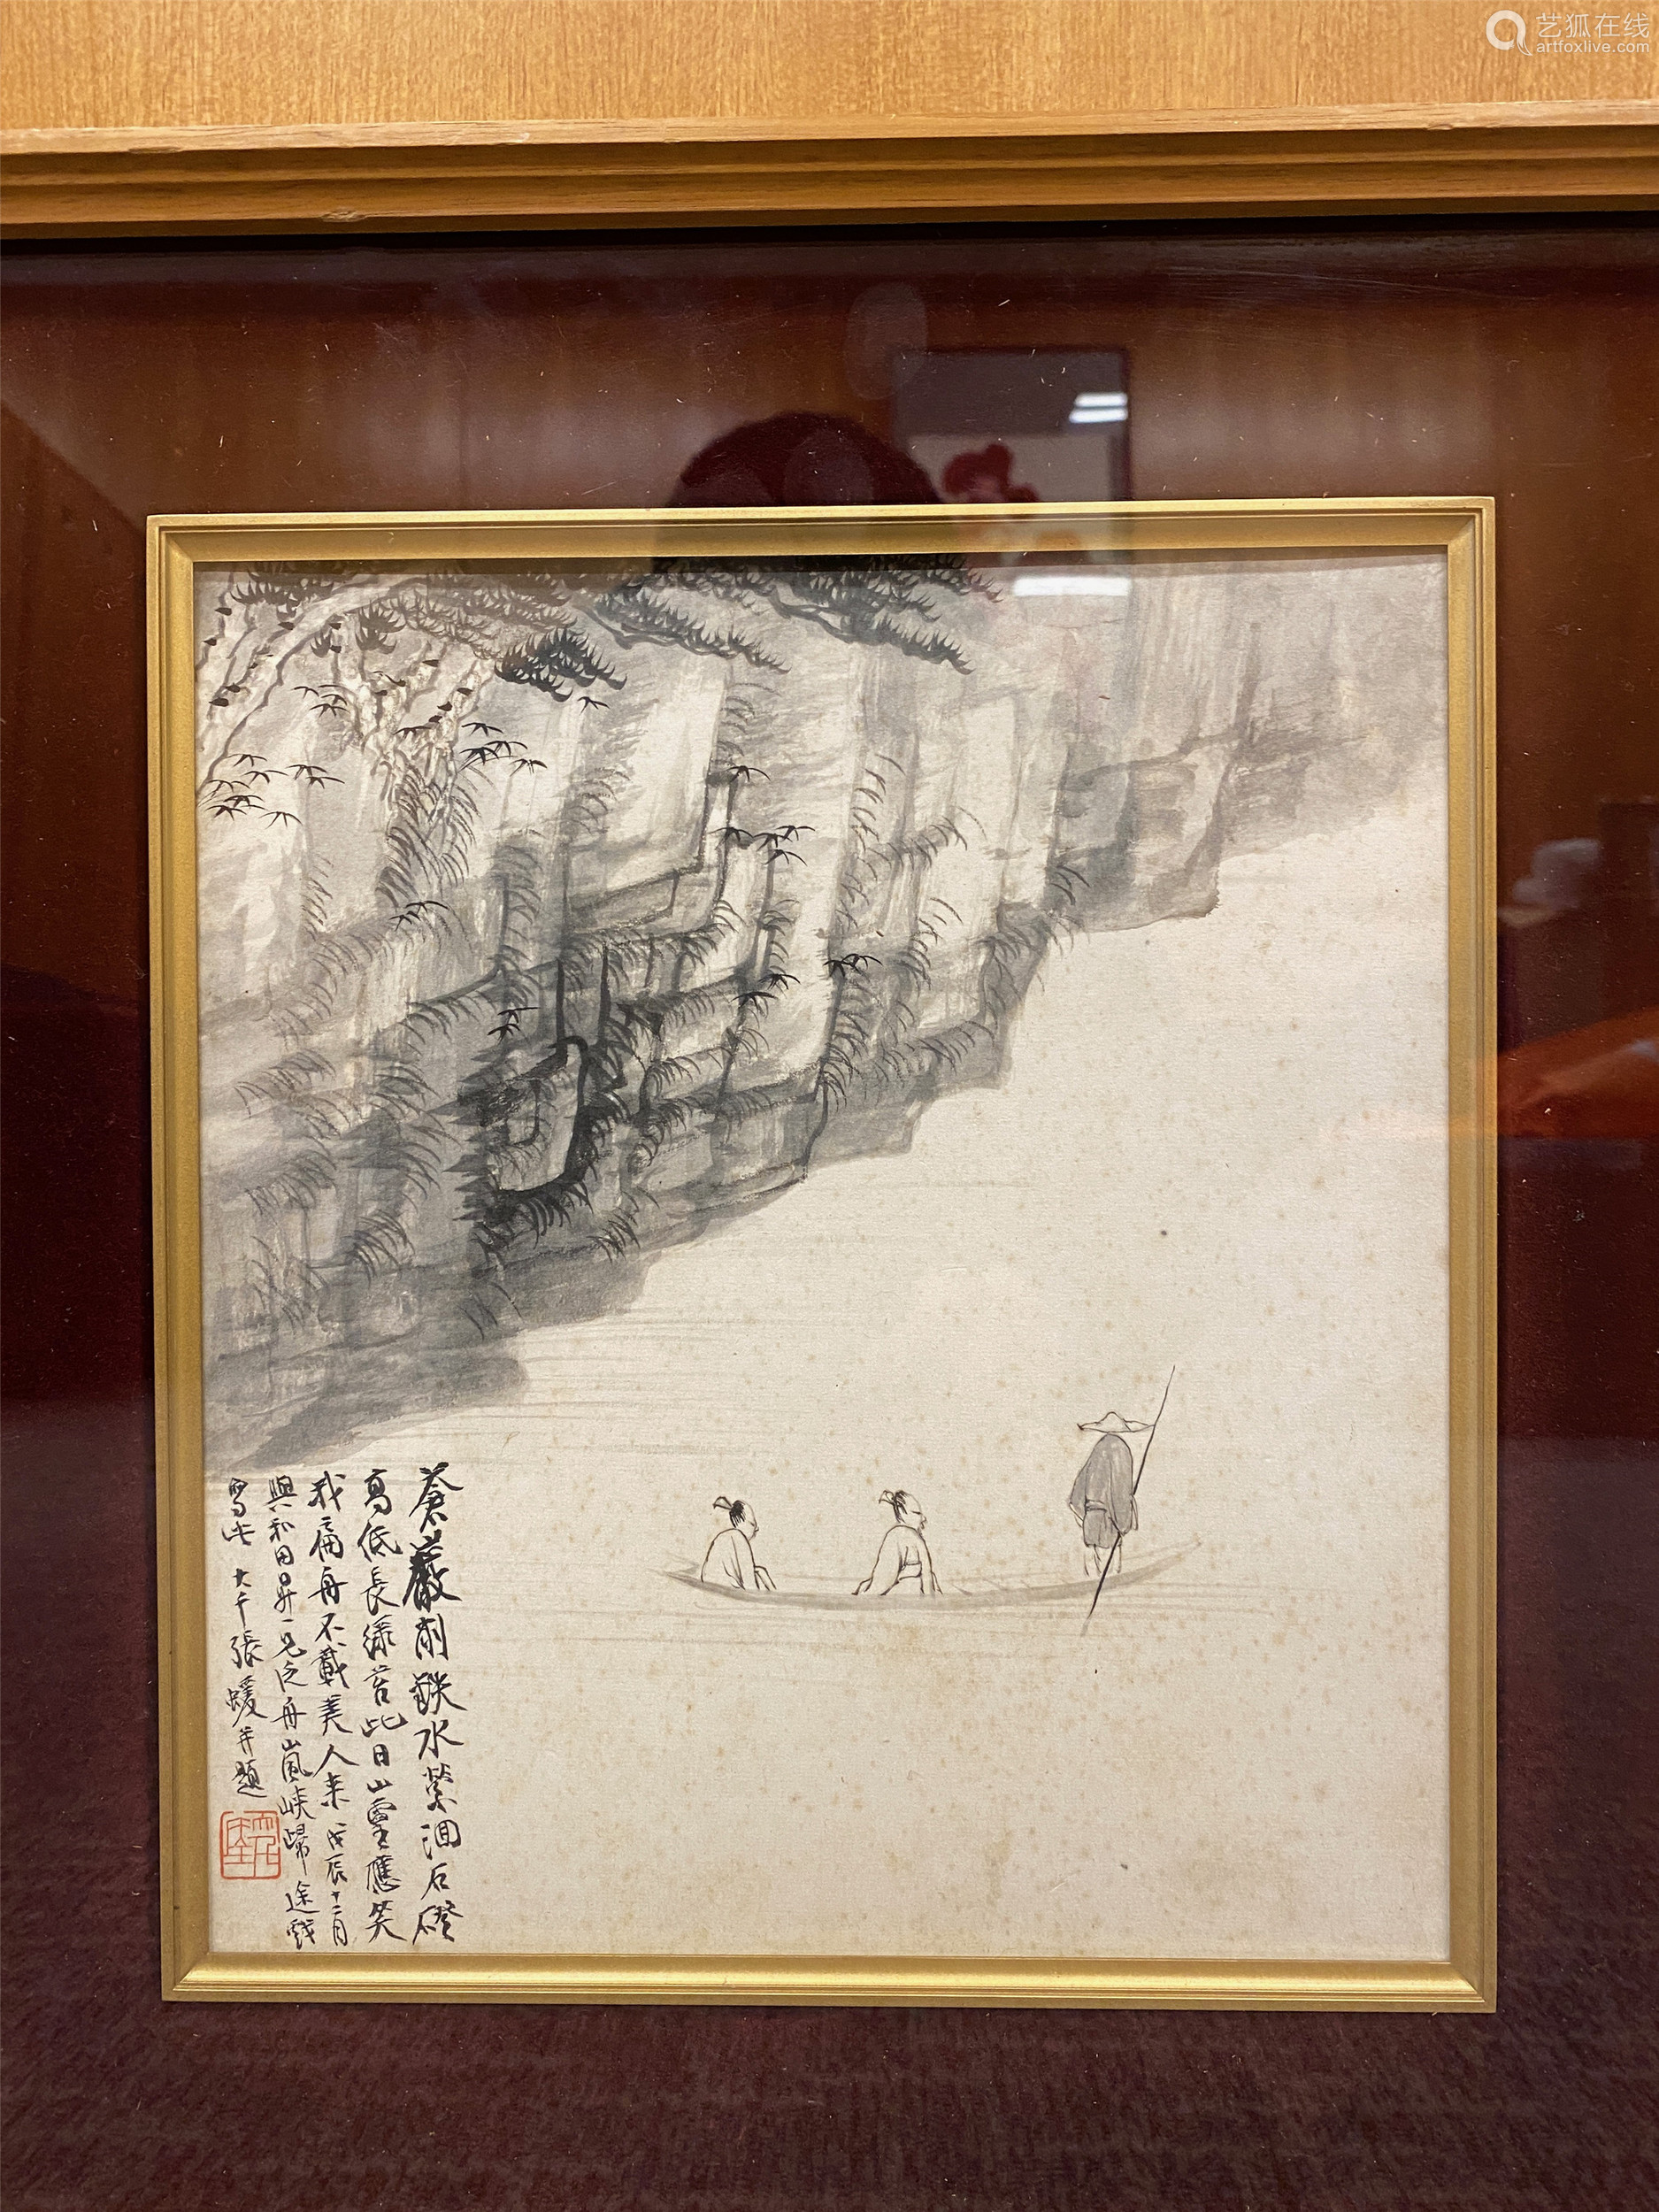 艺狐在线
artfoxlive.com
蒼巖削鉄水縈洄石磴
高低長綠苔此日山靈應笑
我扁舟不載美人来戊辰十二月
與和田昇一兄泛舟嵐峽歸途戲
寫此大千張蝯并題